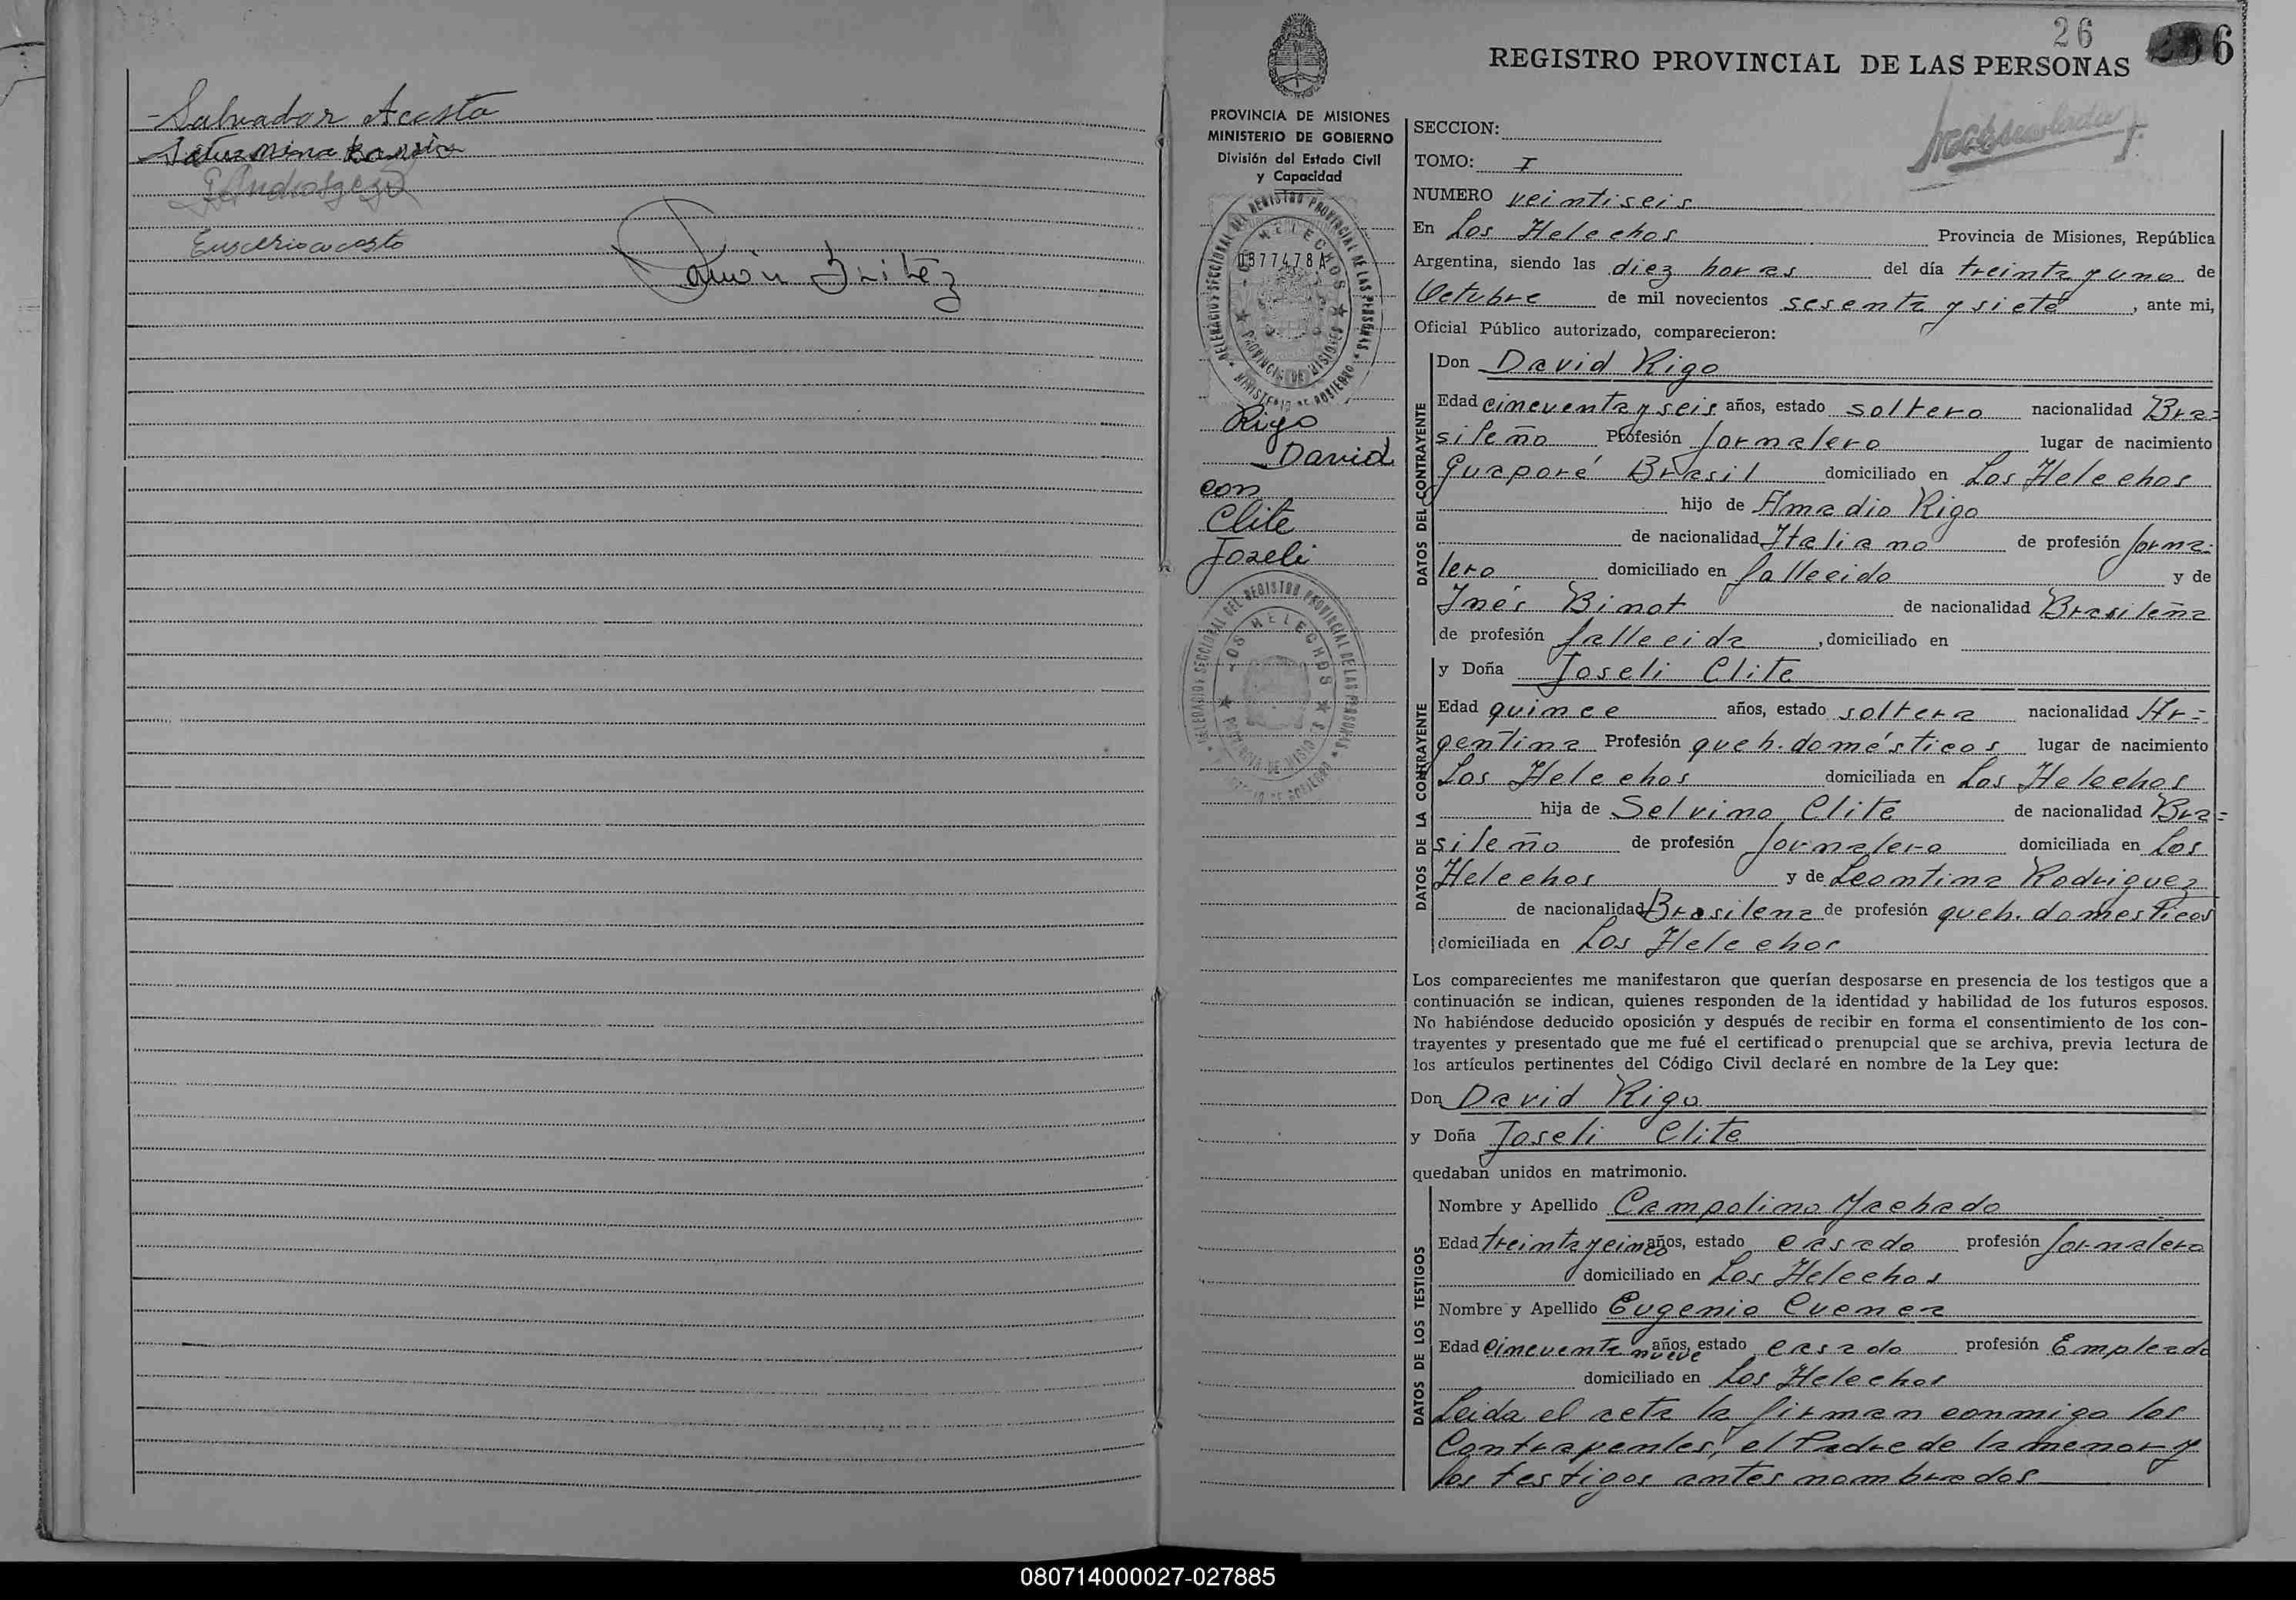 Salvador Acosta
Saturnina
Euserio acosta
Ramón Britez
26
REGISTRO PROVINCIAL DE LAS PERSONAS
6
PROVINCIA DE MISIONES
MINISTERIO DE GOBIERNO
División del Estado Civil
y Capacidad
DELEGACION SECCIONAL DEL REGISTRO PROVINCIAL DE LAS PERSONAS
LOS HELECHOS
0577478A
PROVINCIA DE MISIONES
MINISTERIO DE GOBIERNO
Rigo
David
con
Clite
Joseli
DELEGACION SECCIONAL DEL REGISTRO PROVINCIAL DE LAS PERSONAS
LOS HELECHOS
PROVINCIA DE MISIONES
MINISTERIO DE GOBIERNO
SECCION:
TOMO: I
NUMERO veintiseis
En Los Helechos Provincia de Misiones, República
Argentina, siendo las diez horas del día treinta y uno de
Octubre de mil novecientos sesenta y siete, ante mi,
Oficial Público autorizado, comparecieron:
DATOS DEL CONTRAYENTE
Don David Rigo
Edad cincuenta y seis años, estado soltero nacionalidad Bra=
sileño Profesión Jornalero lugar de nacimiento
Guaporé Brasil domiciliado en Los Helechos
hijo de Amadio Rigo
de nacionalidad Italiano de profesión Jorna-
lero domiciliado en fallecido y de
Inés Binot de nacionalidad Brasileña
de profesión fallecida, domiciliado en
DATOS DE LA CONTRAYENTE
y Doña Joseli Clite
Edad quince años, estado soltera nacionalidad Ar=
gentina Profesión queh. domésticos lugar de nacimiento
Los Helechos domiciliada en Los Helechos
hija de Selvino Clite de nacionalidad Bra=
sileño de profesión Jornalero domiciliada en Los
Helechos y de Leontina Rodriguez
de nacionalidad Brasilena de profesión queh. domesticos
domiciliada en Los Helechos
Los comparecientes me manifestaron que querían desposarse en presencia de los testigos que a
continuación se indican, quienes responden de la identidad y habilidad de los futuros esposos.
No habiéndose deducido oposición y después de recibir en forma el consentimiento de los con-
trayentes y presentado que me fué el certificado prenupcial que se archiva, previa lectura de
los artículos pertinentes del Código Civil declaré en nombre de la Ley que:
Don David Rigo
y Doña Joseli Clite
quedaban unidos en matrimonio.
DATOS DE LOS TESTIGOS
Nombre y Apellido Campolino Machado
Edad treinta y cinco años, estado casado profesión Jornalero
domiciliado en Los Helechos
Nombre y Apellido Eugenio Cuenca
Edad Cincuenta nueve años, estado casado profesión Empleado
domiciliado en Los Helechos
Leida el acta la firman conmigo los
Contrayentes, el Padre de la menor y
los testigos antes nombrados
080714000027-027885